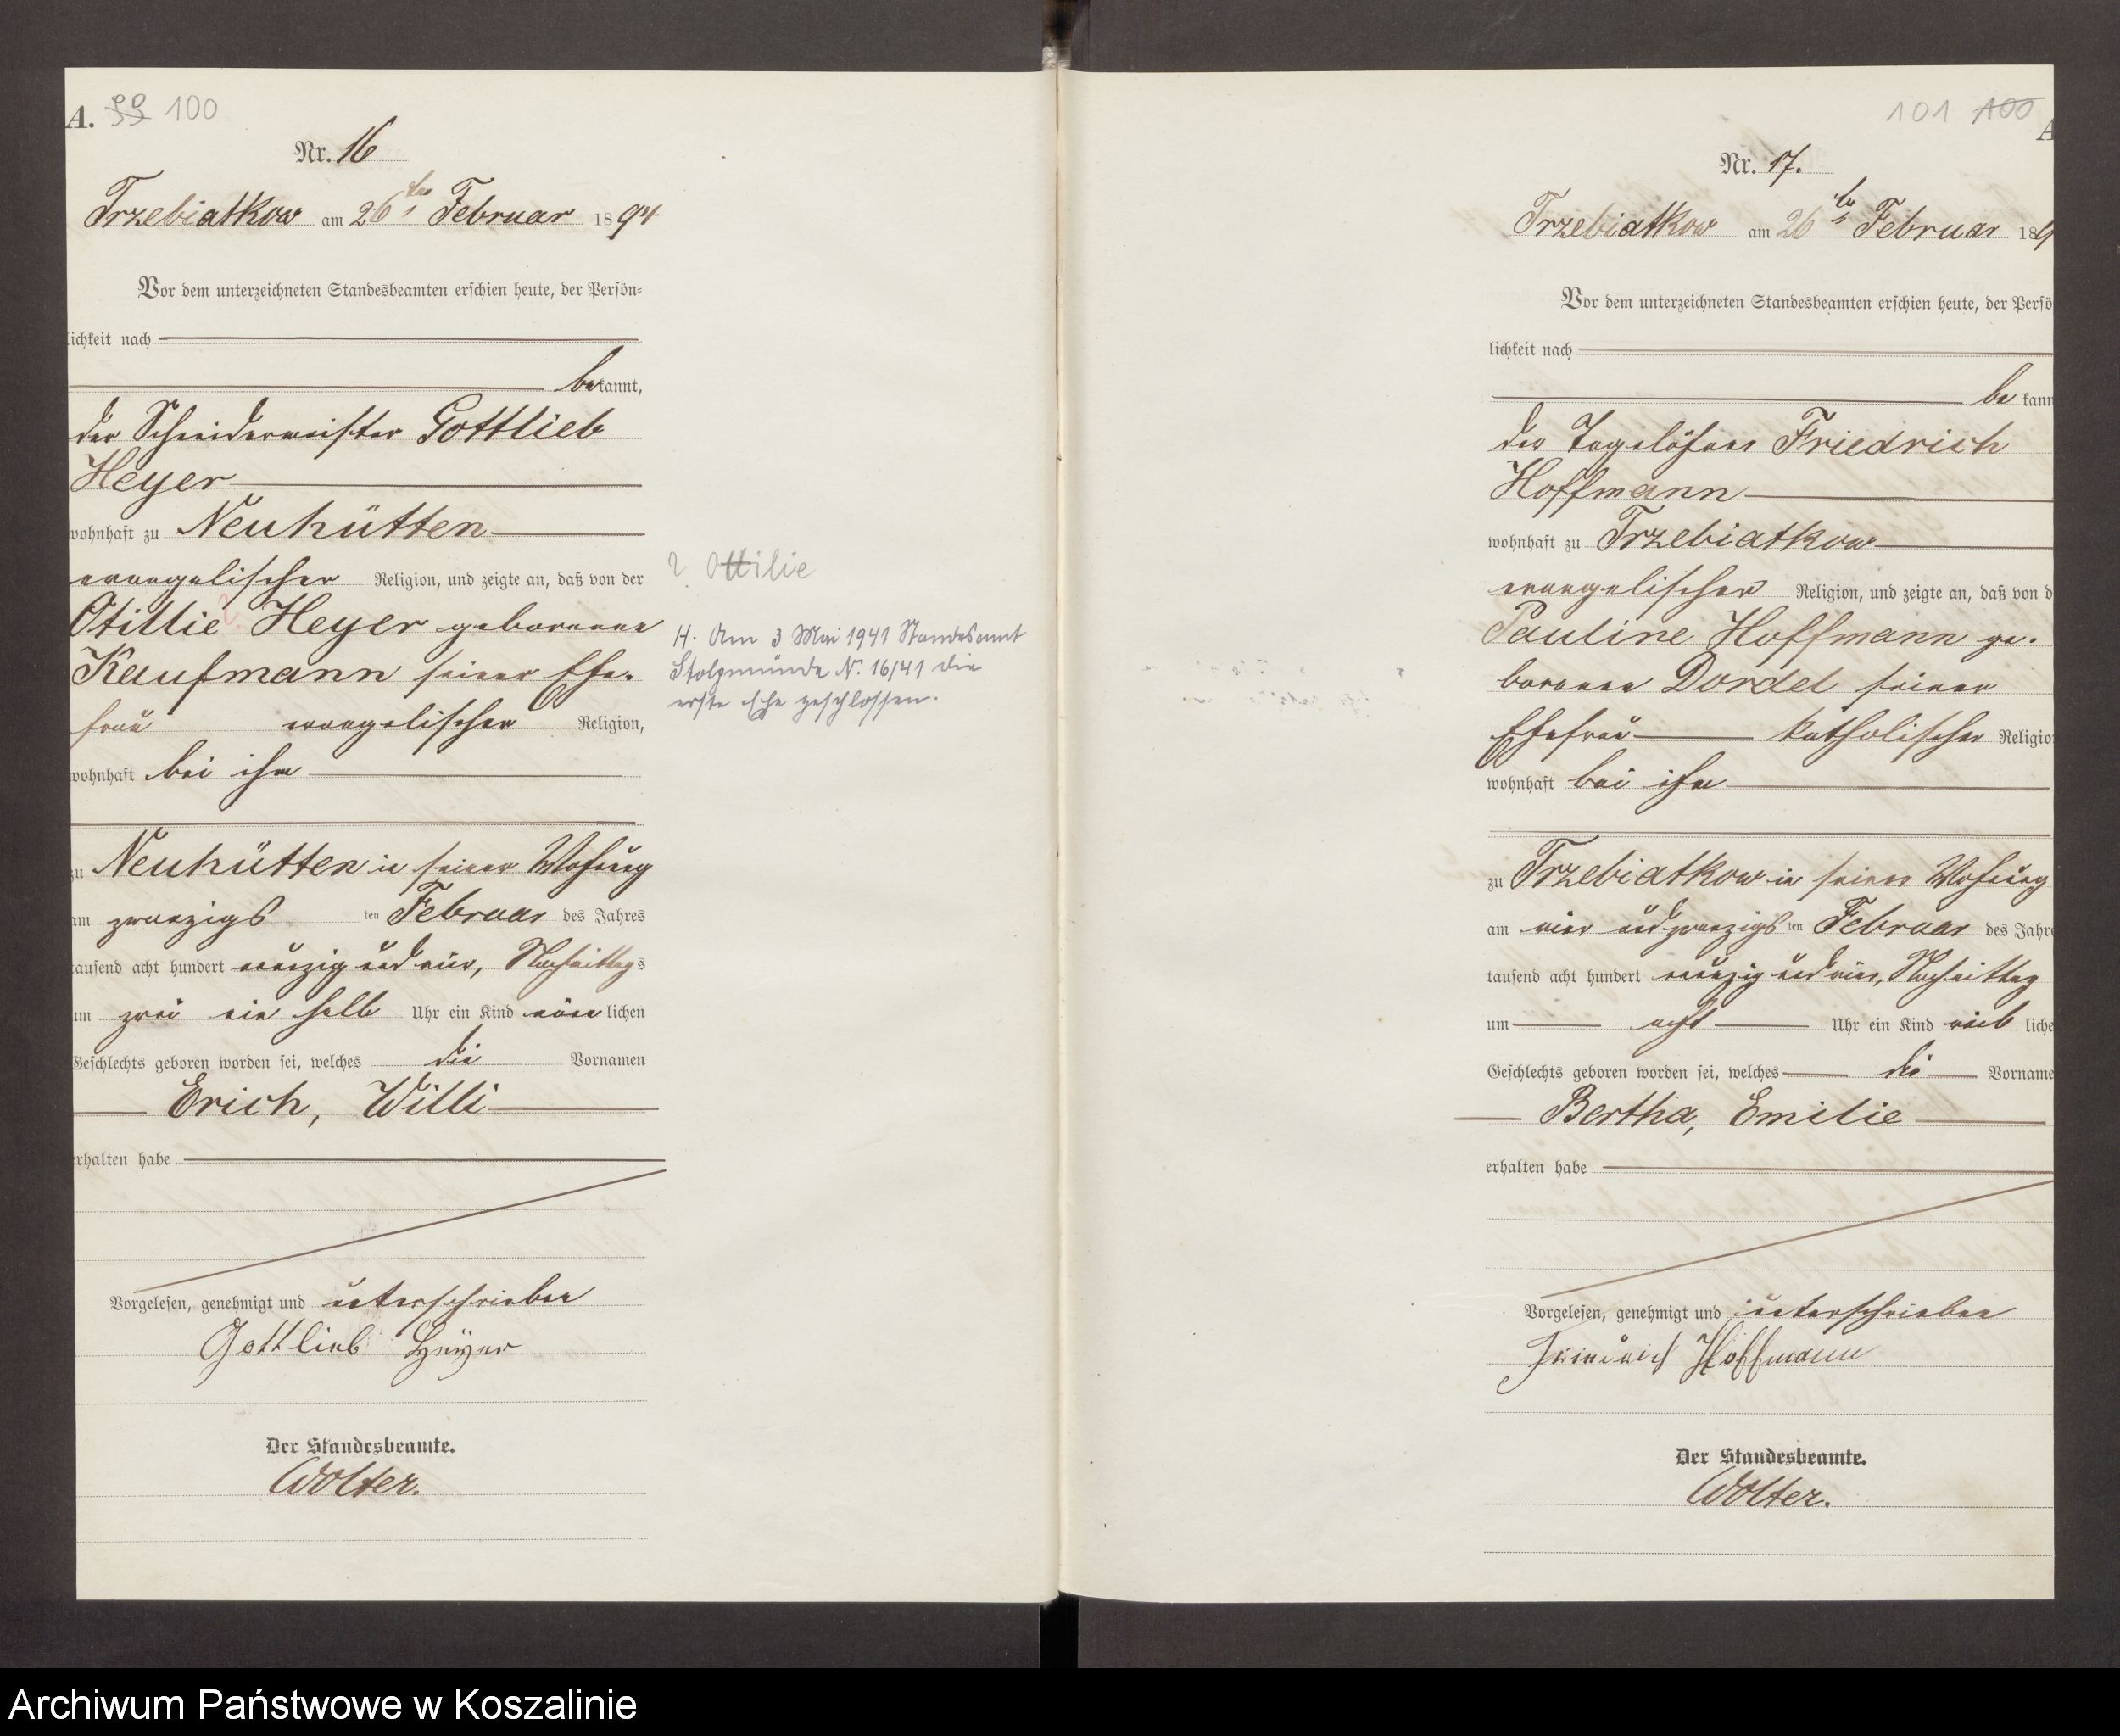 A. 99 100
Nr. 16
Trzebiatkow am 26ten Februar 1894
Vor dem unterzeichneten Standesbeamten erschien heute, der Persön-
lichkeit nach
bekannt,
der Schneidermeister Gottlieb
Heyer
wohnhaft zu Neuhütten
evangelischer Religion, und zeigte an, daß von der
Otillie Heyer geborenen
Kaufmann seiner Ehe-
frau evangelischer Religion,
wohnhaft bei ihm
zu Neuhütten in seiner Wohnung
am zwanzigs ten Februar des Jahres
tausend acht hundert neunzig und vier, Nachmittags
um zwei ein halb Uhr ein Kind männ lichen
Geschlechts geboren worden sei, welches die Vornamen
Erich, Willi
erhalten habe
Vorgelesen, genehmigt und unterschrieben
Gottlieb Heyer
Der Standesbeamte.
Wolter.
? Ottilie
H. Am 3 Mai 1941 Standesamt
Stolpmünde N. 16/41 die
erste Ehe geschlossen.
101 100
A
Nr. 17.
Trzebiatkow am 26ten Februar 189
Vor dem unterzeichneten Standesbeamten erschien heute, der Persö
lichkeit nach
be kann
der Tagelöhner Friedrich
Hoffmann
wohnhaft zu Trzebiatkow
evangelischer Religion, und zeigte an, daß von d
Pauline Hoffmann ge-
borenen Dordel seiner
Ehefrau katholischer Religio
wohnhaft bei ihm
zu Trzebiatkow in seiner Wohnung
am vier und zwanzigs ten Februar des Jahre
tausend acht hundert neunzig und vier, Nachmittag
um acht Uhr ein Kind weib liche
Geschlechts geboren worden sei, welches die Vorname
Bertha, Emilie
erhalten habe
Vorgelesen, genehmigt und unterschrieben
Friedrich Hoffmann
Der Standesbeamte.
Wolter.
Archiwum Państwowe w Koszalinie